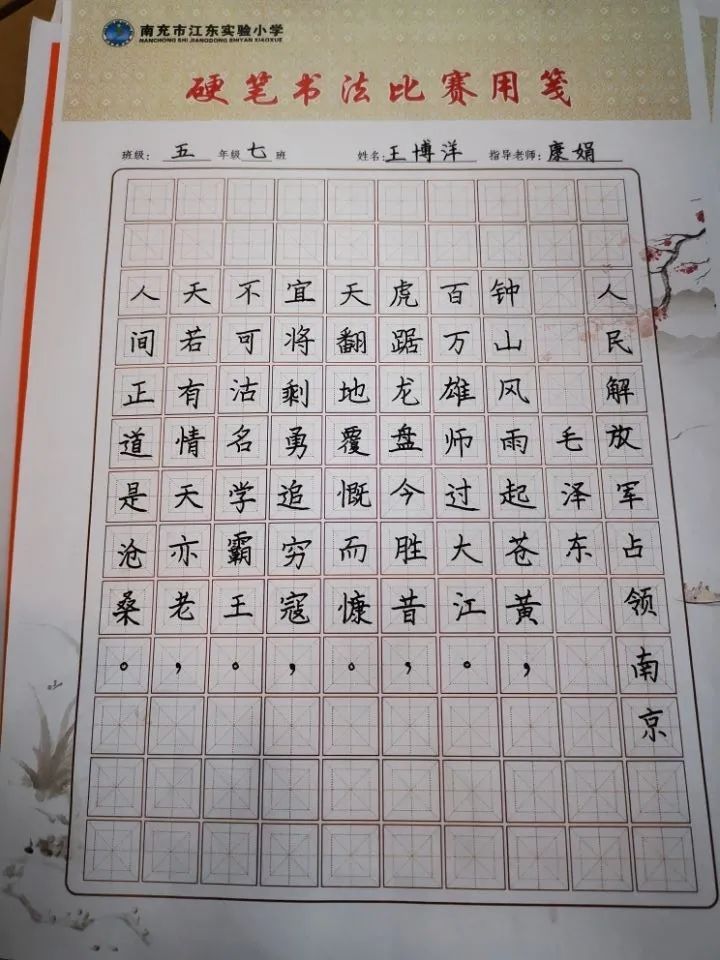 南充市江东实验小学
NANCHONG SHI JIANGDONG SHIYAN XIAOXUE
硬笔书法比赛用笺
班级: 五 年级 七 班 姓名: 王博洋 指导老师: 康娟
人民解放军占领南京
毛泽东
钟山风雨起苍黄,
百万雄师过大江。
虎踞龙盘今胜昔,
天翻地覆慨而慷。
宜将剩勇追穷寇,
不可沽名学霸王。
天若有情天亦老,
人间正道是沧桑。